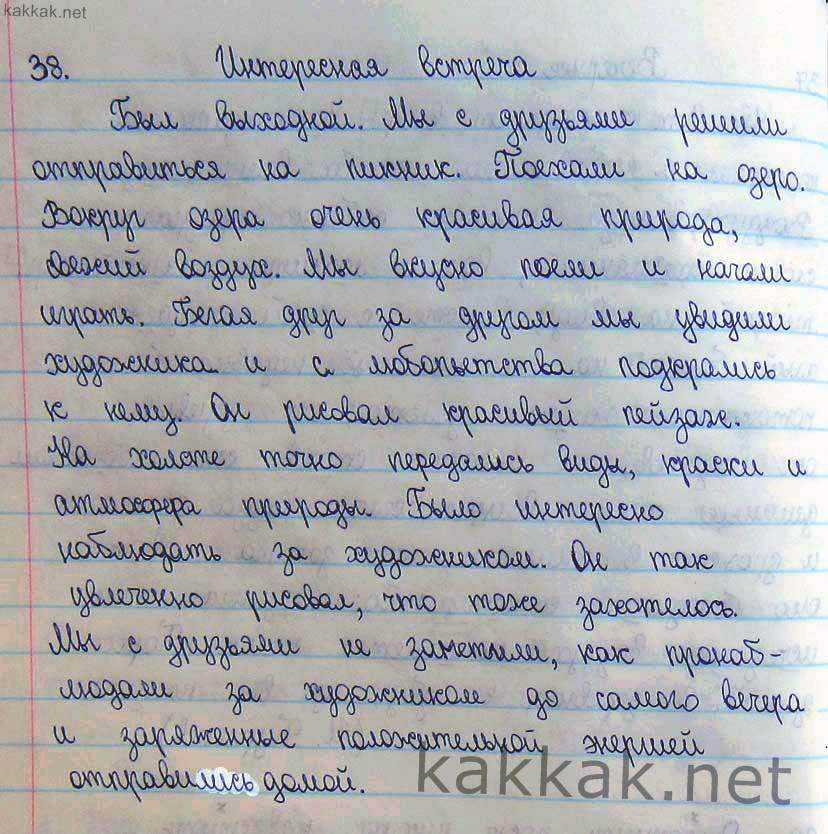 kakkak.net
38. Интересная встреча
Был выходной. Мы с друзьями решили
отправиться на пикник. Поехали на озеро.
Вокруг озера очень красивая природа,
свежий воздух. Мы вкусно поели и начали
играть. Бегая друг за другом мы увидели
художника и с любопытства подкрались
к нему. Он рисовал красивый пейзаж.
На холсте точно передались виды, краски и
атмосфера природы. Было интересно
наблюдать за художником. Он так
увлеченно рисовал, что тоже захотелось.
Мы с друзьями не заметили, как пронаб-
людали за художником до самого вечера
и заряженные положительной энергией
отправились домой.
kakkak.net